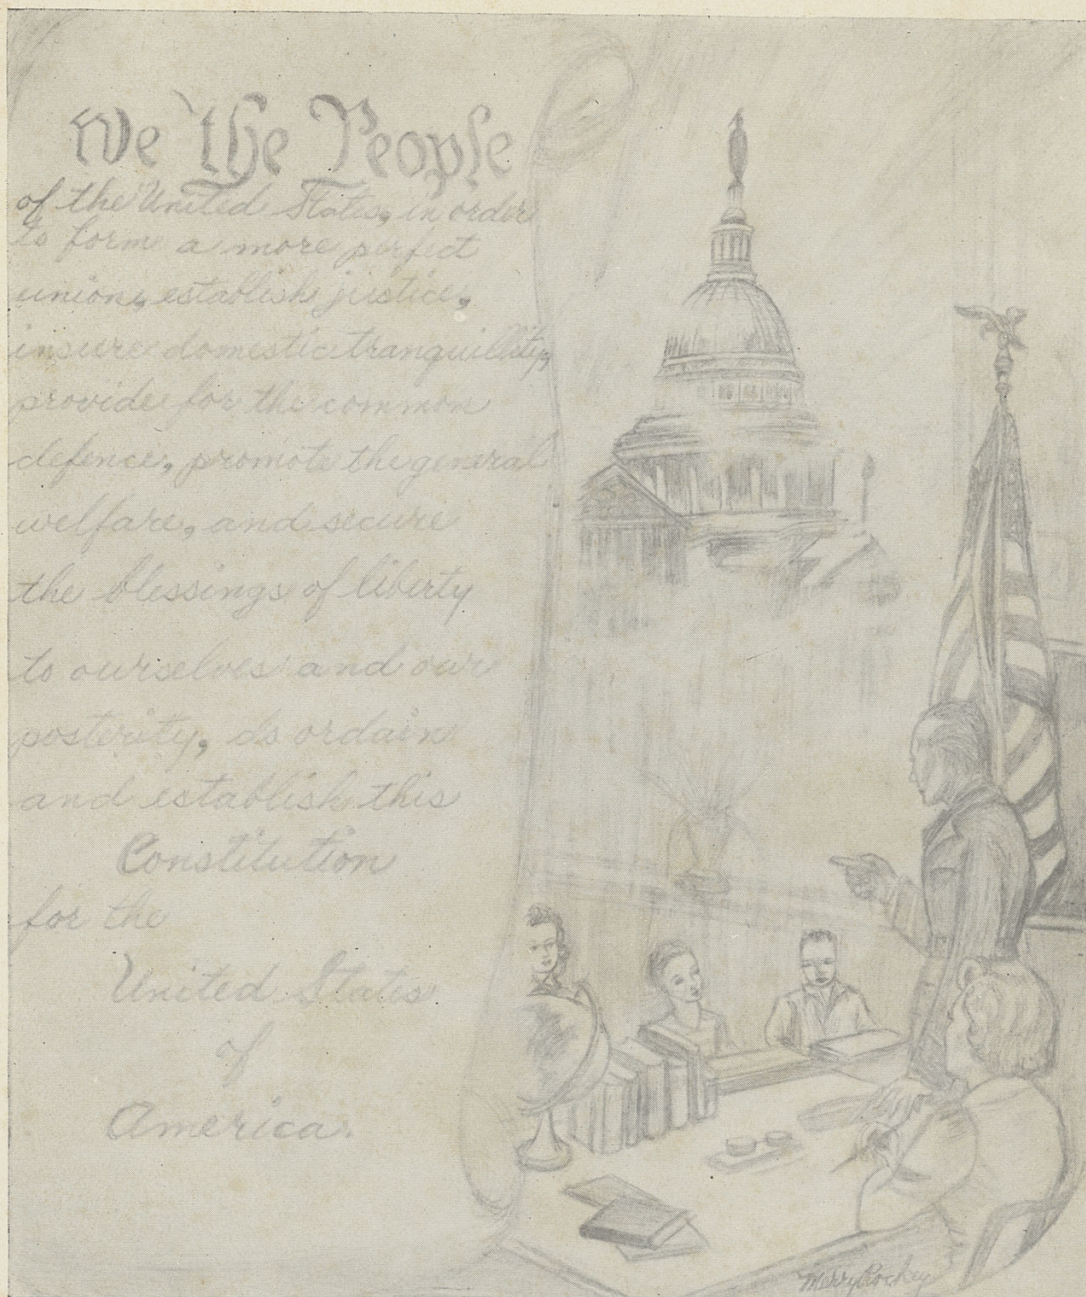 We the People
of the United States, in order
to form a more perfect
union, establish justice,
insure domestic tranquility,
provide for the common
defence, promote the general
welfare, and secure
the blessings of liberty
to ourselves and our
posterity, do ordain
and establish this
Constitution
for the
United States
of
America.